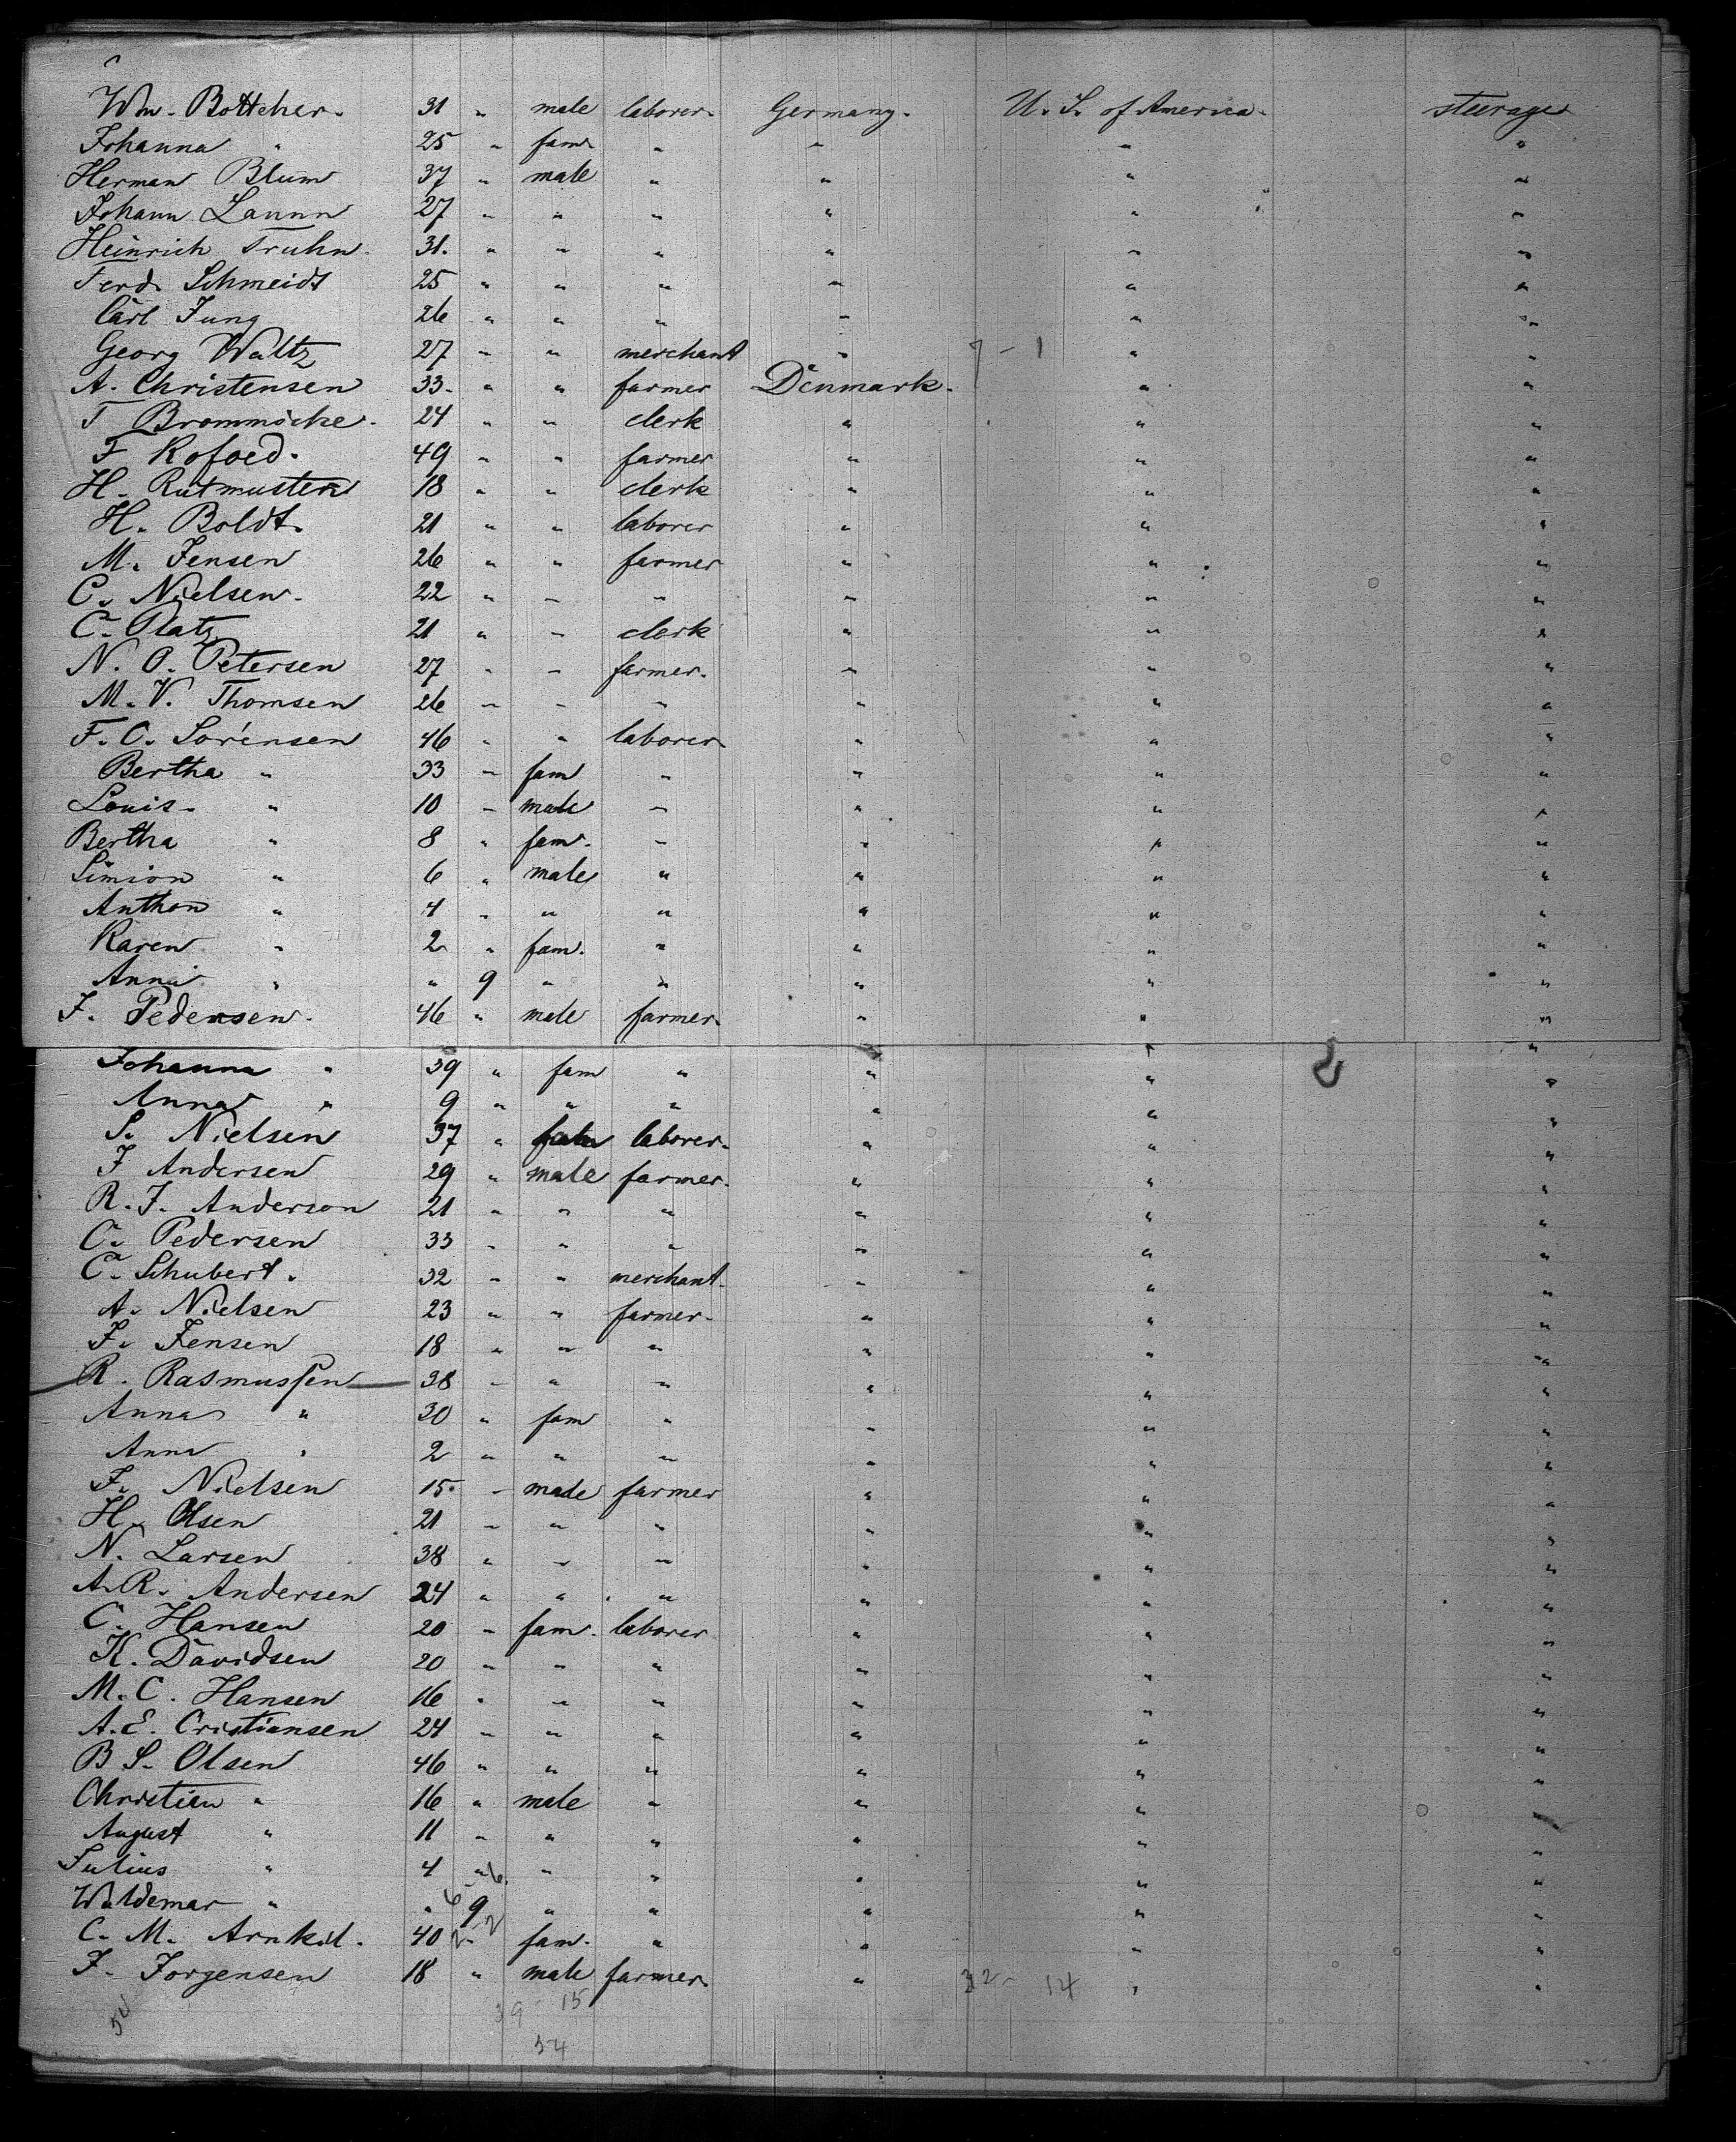 Wm. Bottcher. 31 " male laborer. Germany. U. S. of America. steerage
Johanna " 25 " fam " " " "
Herman Blum 37 " male " " " "
Johann Lannn 27 " " " " " "
Heinrich Truhn. 31. " " " " " "
Ferd. Schmeidt 25 " " " " " "
Carl Jung 26 " " " " " "
Georg Waltz 27 " " merchant " 7 - 1 " "
A. Christensen 33. " " farmer Denmark. " "
T Brommöcke. 24 " " clerk " " "
F Kofoed. 49 " " farmer " " "
H. Rutmusten 18 " " clerk " " "
H. Boldt. 21 " " laborer " " "
M. Jensen 26 " " farmer " " "
C. Nielsen. 22 " " " " " "
C. Platz 21 " " clerk " " "
N. O. Petersen 27 " " farmer. " " "
M. V. Thomsen 26 " " " " " "
F. C. Sorensen 46 " " laborer " " "
Bertha " 33 " fam " " " "
Louis. " 10 " male " " " "
Bertha " 8 " fam. " " " "
Simion " 6 " male " " " "
Anthon " 4 " " " " " "
Karen " 2 " fam. " " " "
Anna " " 9 " " " " "
J. Pedersen. 46 " male farmer. " " "
Johanna " 39 " fam " " " "
Anna " 9 " " " " " "
S. Nielsen 37 " laborer. " " "
J Andersen 29 " male farmer. " " "
R. J. Anderson 21 " " " " " "
C. Pedersen 33 " " " " " "
C. Schubert. 32 " " merchant. " " "
A. Nielsen 23 " " farmer. " " "
J. Jensen 18 " " " " " "
R. Rasmussen 38 " " " " " "
Anna " 30 " fam " " " "
Anna " 2 " " " " " "
J. Nielsen 15. " male farmer " " "
H. Olsen 21 " " " " " "
N. Larsen 38 " " " " " "
A. R. Andersen 24 " " " " " "
C. Hansen 20 " fam. laborer " " "
K. Davidsen 20 " " " " " "
M. C. Hansen 16 " " " " " "
A. E. Cristiansen 24 " " " " " "
B S. Olsen 46 " " " " " "
Christian " 16 " male " " " "
August " 11 " " " " " "
Julius " 4 " 6. " " " " "
Waldemar " " 6 9 " " " " "
C. M. Arnkil. 40 2-2 fam. " " " "
J. Jorgensen 18 " male farmer. " 32 - 14 " "
54 39 - 15
54